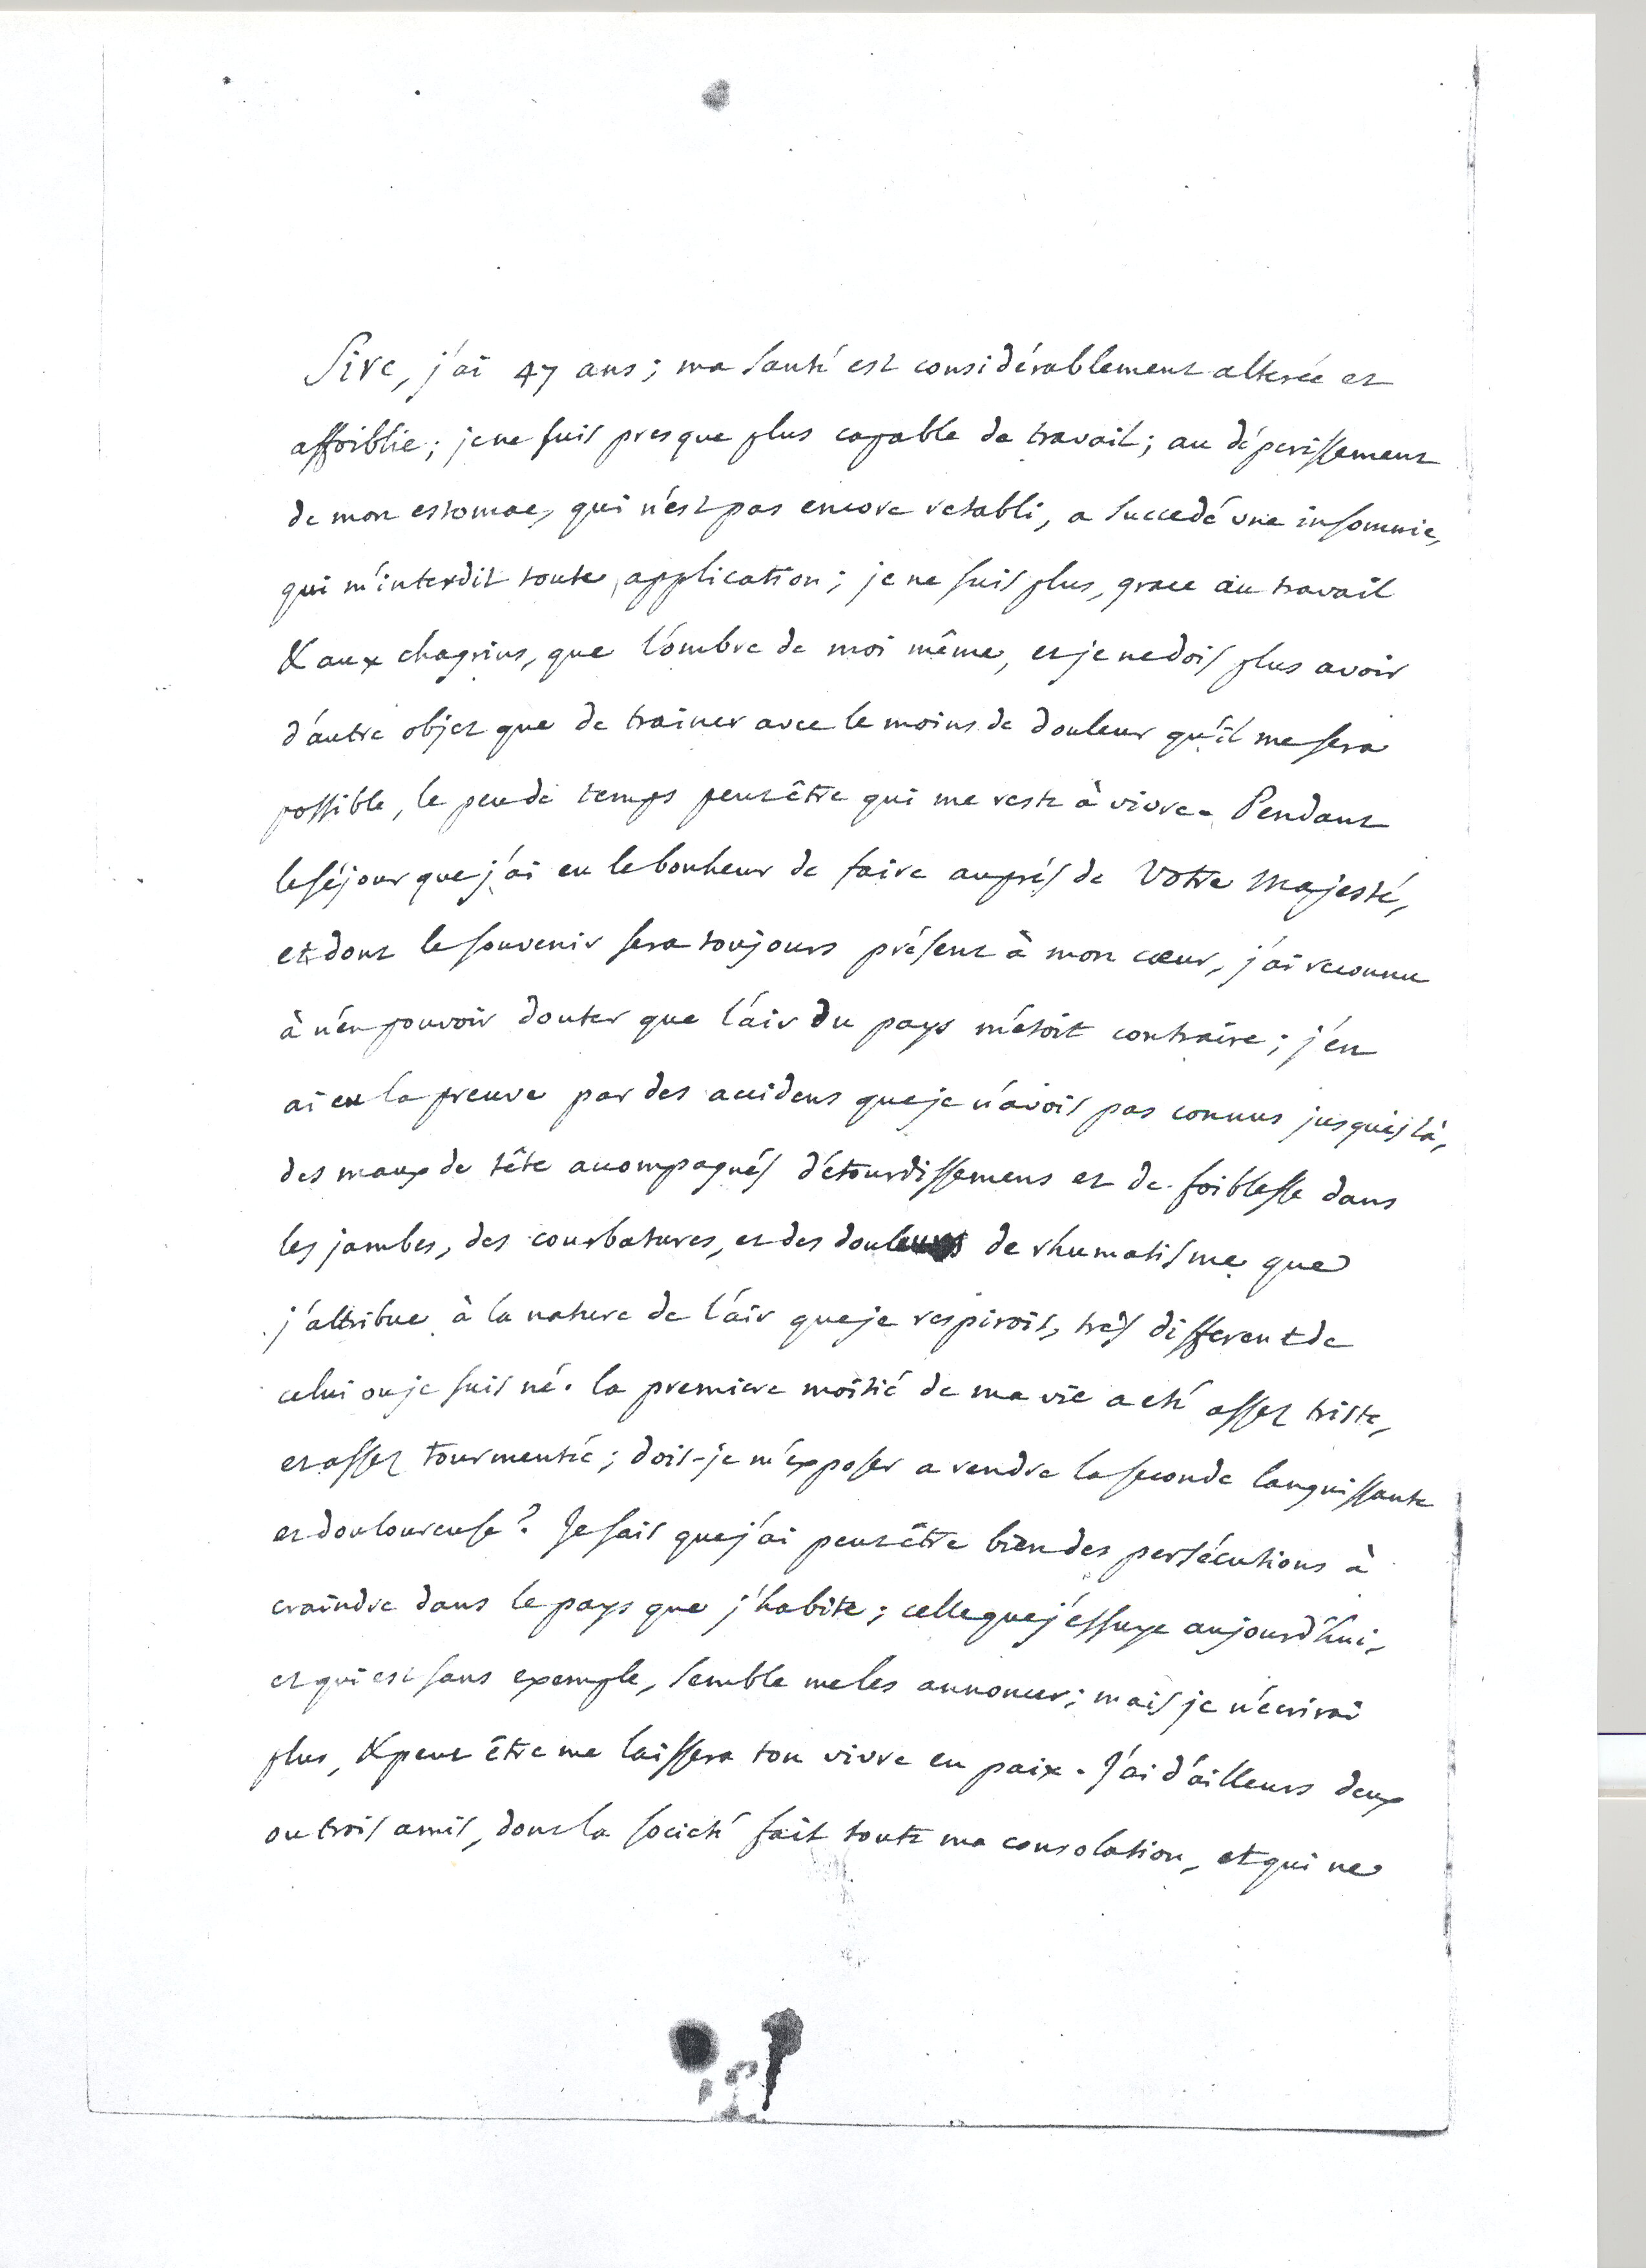 Sire, j'ai 47 ans; ma santé est considérablement alterée et
affoiblie; je ne suis presque plus capable de travail; au déperissement
de mon estomac, qui n'est pas encore retabli, a succedé une insomnie,
qui m'interdit toute application; je ne suis plus, grace au travail
& aux chagrins, que l'ombre de moi même, et je ne dois plus avoir
d'autre objet que de trainer avec le moins de douleur qu'il me sera
possible, le peu de temps peut être qui me reste à vivre. Pendant
le séjour que j'ai eu le bonheur de faire auprés de Votre Majesté,
et dont le souvenir sera toujours présent à mon cœur, j'ai reconnu
à n'en pouvoir douter que l'air du pays m'étoit contraire; j'en
ai eu la preuve par des accidens que je n'avois pas connus jusques là,
des maux de tête accompagnés d'étourdissemens et de foiblesse dans
les jambes, des courbatures, et des douleurs de rhumatisme que
j'attribue à la nature de l'air que je respirois, trés different de
celui ou je suis né. la premiere moitié de ma vie a eté assez triste,
et assez tourmentée; dois-je m'exposer a rendre la seconde languissante
et douloureuse? Je sais que j'ai peut être bien des persécutions à
craindre dans le pays que j'habite; celle que j'essuye aujourd'hui,
et qui est sans exemple, semble me les annoncer; mais je n'écrirai
plus, & peut être me laissera ton vivre en paix. J'ai d'ailleurs deux
ou trois amis, dont la societé fait toute ma consolation, et qui ne